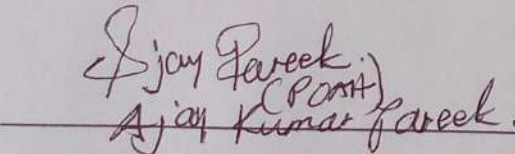 Ajay Pareek.
(POAH)
Ajay Kumar Pareek.